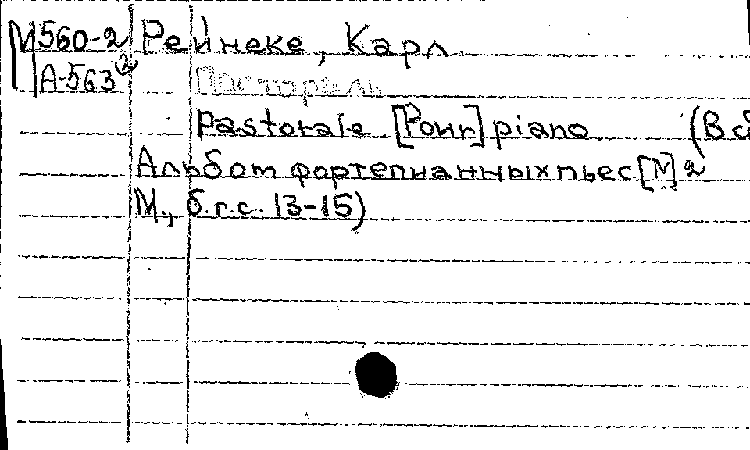 М560-2 Рейнеке, Карл
А-563 (2) Пастораль
Pastorale [Pour] piano (В сб
Альбом фортепианных пьес [N] 2
М., б.г. с. 13-15)